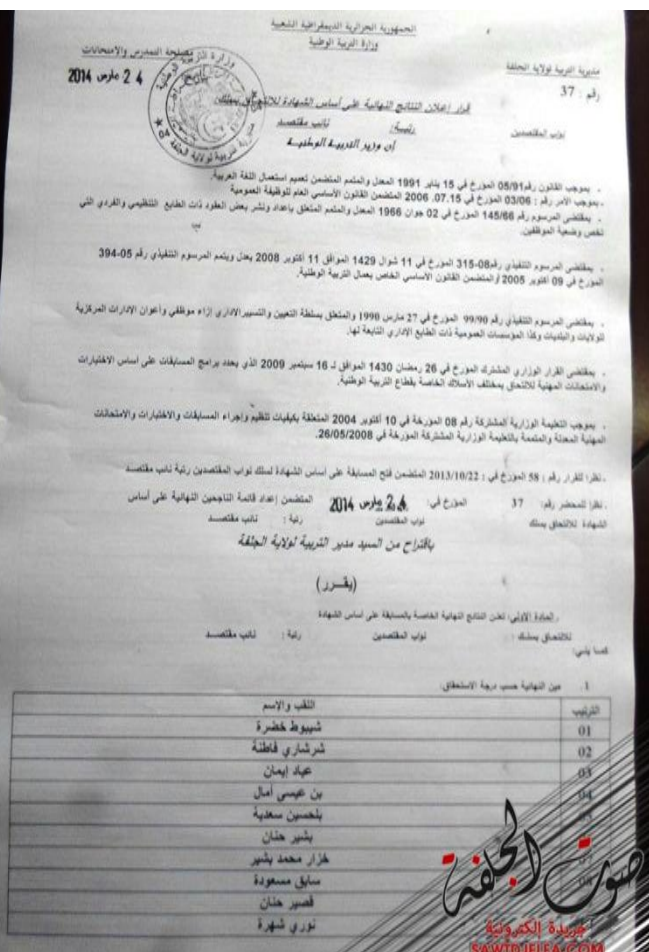 الجمهورية الجزائرية الديمقراطية الشعبية
وزارة التربية الوطنية
مديرية التربية لولاية الجلفة
مصلحة التمدرس والامتحانات
رقم : 37
24 مارس 2014
قرار إعلان النتائج النهائية على أساس الشهادة للالتحاق بسلك
نواب المقتصدين رتبة: نائب مقتصد
إن وزير التربية الوطنية
. بموجب القانون رقم 05/91 المؤرخ في 15 يناير 1991 المعدل والمتمم المتضمن تعميم استعمال اللغة العربية.
. بموجب الأمر رقم : 03/06 المؤرخ في 07.15. 2006 المتضمن القانون الأساسي العام للوظيفة العمومية
. بمقتضى المرسوم رقم 145/66 المؤرخ في 02 جوان 1966 المعدل والمتمم المتعلق بإعداد ونشر بعض العقود ذات الطابع التنظيمي والفردي التي
تخص وضعية الموظفين.
. بمقتضى المرسوم التنفيذي رقم 08-315 المؤرخ في 11 شوال 1429 الموافق 11 أكتوبر 2008 يعدل ويتمم المرسوم التنفيذي رقم 05-394
المؤرخ في 09 أكتوبر 2005 والمتضمن القانون الأساسي الخاص بعمال التربية الوطنية.
. بمقتضى المرسوم التنفيذي رقم 99/90 المؤرخ في 27 مارس 1990 والمتعلق بسلطة التعيين والتسيير الإداري إزاء موظفي وأعوان الإدارات المركزية
للولايات والبلديات وكذا المؤسسات العمومية ذات الطابع الإداري التابعة لها.
. بمقتضى القرار الوزاري المشترك المؤرخ في 26 رمضان 1430 الموافق لـ 16 سبتمبر 2009 الذي يحدد برامج المسابقات على أساس الاختبارات
والامتحانات المهنية للالتحاق بمختلف الأسلاك الخاصة بقطاع التربية الوطنية.
. بموجب التعليمة الوزارية المشتركة رقم 08 المؤرخة في 10 أكتوبر 2004 المتعلقة بكيفيات تنظيم وإجراء المسابقات والاختبارات والامتحانات
المهنية المعدلة والمتممة بالتعليمة الوزارية المشتركة المؤرخة في 26/05/2008.
. نظرا للقرار رقم : 58 المؤرخ في : 2013/10/22 المتضمن فتح المسابقة على أساس الشهادة لسلك نواب المقتصدين رتبة نائب مقتصد
. نظرا للمحضر رقم: 37 المؤرخ في: 24 مارس 2014 المتضمن إعداد قائمة الناجحين النهائية على أساس
الشهادة للالتحاق بسلك نواب المقتصدين رتبة : نائب مقتصد
باقتراح من السيد مدير التربية لولاية الجلفة
(يقـرر)
المادة الأولى: تعلن النتائج النهائية الخاصة بالمسابقة على أساس الشهادة
للالتحاق بسلك : نواب المقتصدين رتبة : نائب مقتصد
كما يلي:
1. النهائية حسب درجة الاستحقاق:
الترتيب اللقب والاسم
01 شبيوط خضرة
02 شرشاري فاطنة
03 عياد إيمان
04 بن عيسى أمال
05 بلحسين سعدية
بشير حنان
07 خزار محمد بشير
08 سابق مسعودة
قصير حنان
نوري شهرة
صوت الجلفة
جريدة إلكترونية
SAWTDJELFA.COM